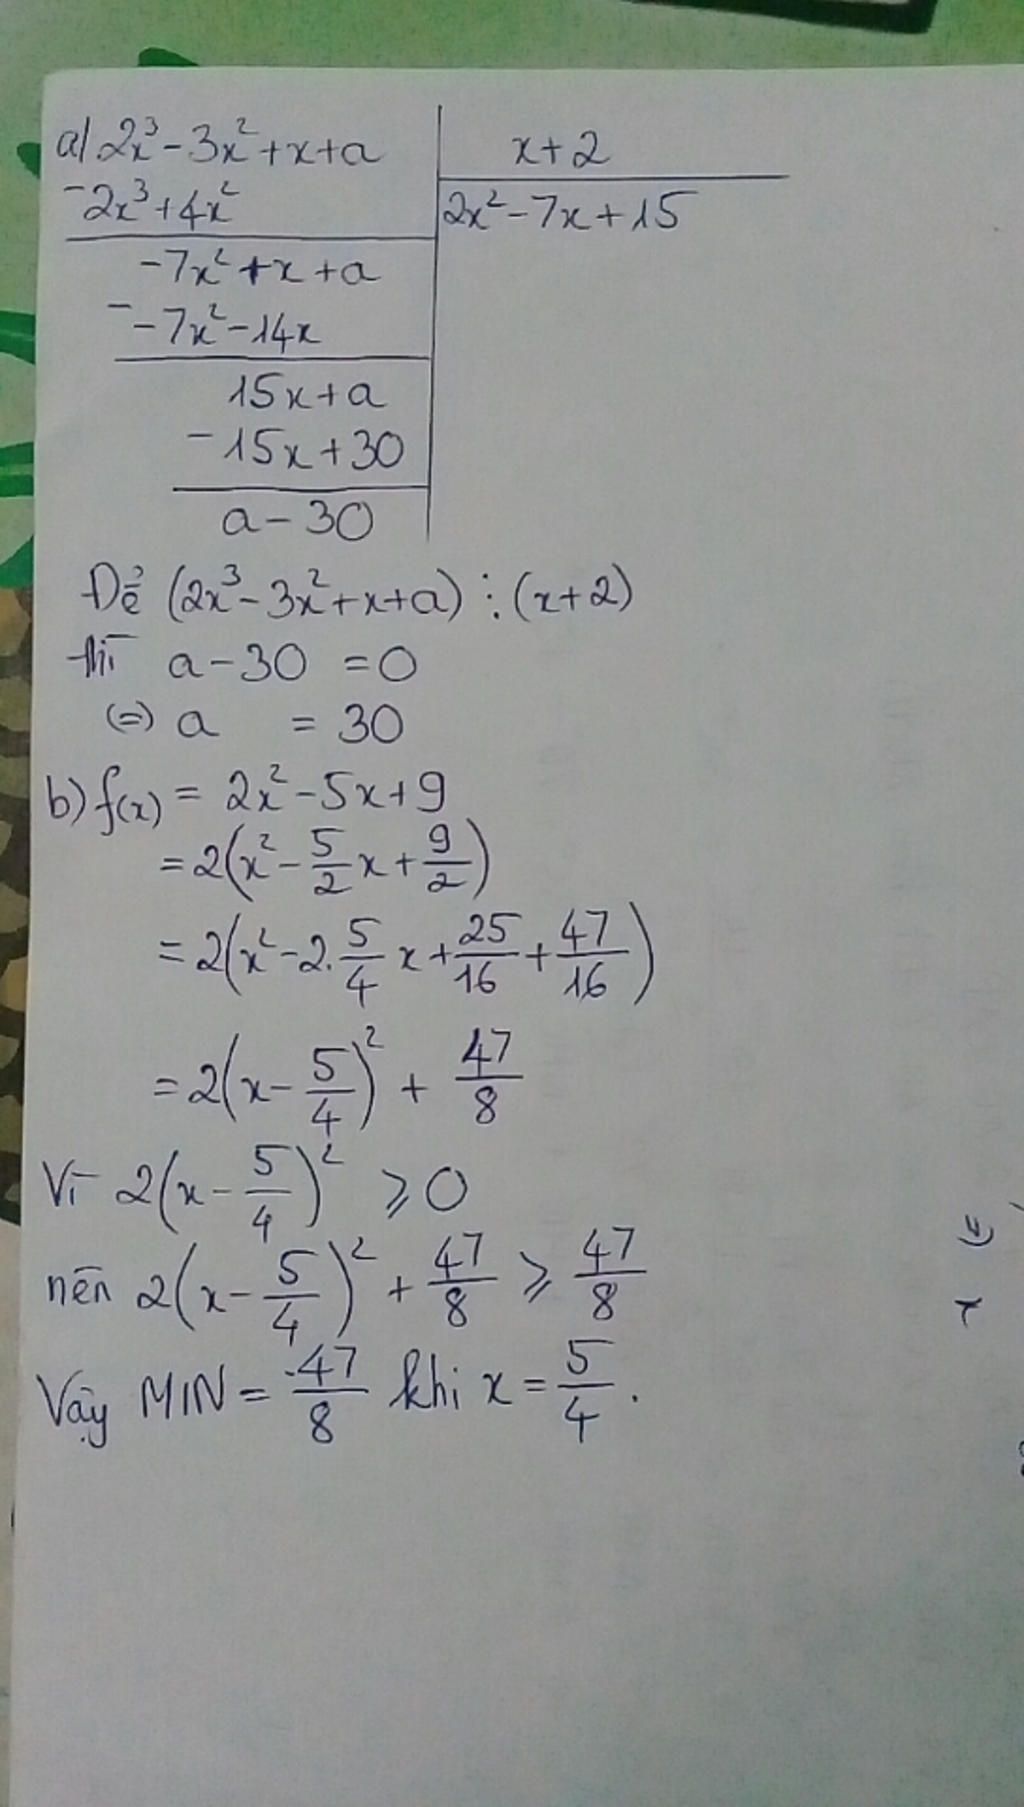 a) 2x³ - 3x² + x + a | x + 2
- 2x³ + 4x² | 2x² - 7x + 15
-7x² + x + a
- -7x² - 14x
15x + a
- 15x + 30
a - 30
Để (2x³ - 3x² + x + a) ⋮ (x + 2)
thì a - 30 = 0
(=) a = 30
b) f(x) = 2x² - 5x + 9
= 2(x² - 5/2 x + 9/2)
= 2(x² - 2. 5/4 x + 25/16 + 47/16)
= 2(x - 5/4)² + 47/8
Vì 2(x - 5/4)² ⩾ 0
nên 2(x - 5/4)² + 47/8 ⩾ 47/8
Vậy MIN = 47/8 khi x = 5/4.